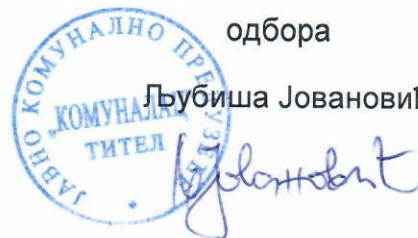 одбора
Љубиша Јованови
ЈАВНО КОМУНАЛНО ПРЕДУЗЕЋЕ
„КОМУНАЛАЦ"
ТИТЕЛ
Јовановић